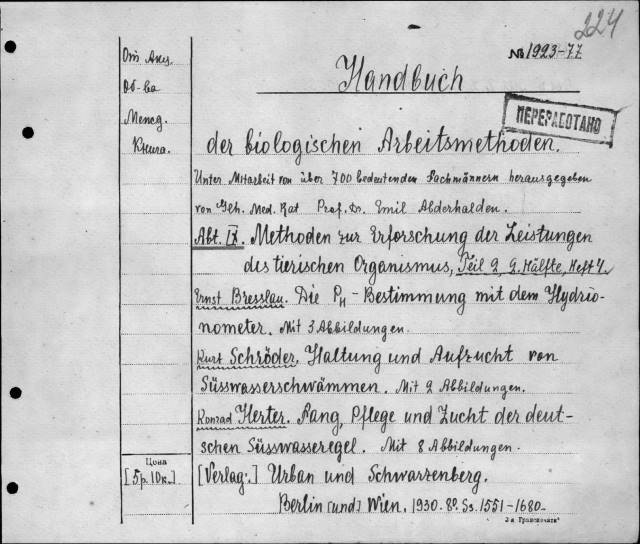 224
№ 1923-77
Handbuch
ПЕРЕРАБОТАНО
От Акц.
Об-ва
Межд.
Книга.
der biologischen Arbeitsmethoden.
Unter Mitarbeit von über 700 bedeutenden Fachmännern herausgegeben
von Geh. Med. Rat Prof. Dr. Emil Abderhalden.
Abt. IX. Methoden zur Erforschung der Leistungen
des tierischen Organismus, Teil 2, 2. Hälfte, Heft 7.
Ernst Bresslau. Die PH - Bestimmung mit dem Hydrio-
nometer. Mit 3 Abbildungen.
Kurt Schröder. Haltung und Aufzucht von
Süsswasserschwämmen. Mit 2 Abbildungen.
Konrad Herter. Fang, Pflege und Zucht der deut-
schen Süsswasseregel. Mit 8 Abbildungen.
Цена
[5 р. 10 к.]
[Verlag:] Urban und Schwarzenberg.
Berlin [und] Wien. 1930. 8º. Ss. 1551-1680.